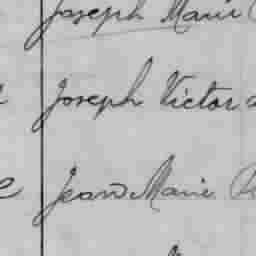 Joseph Marie
Joseph Victor
Jean Marie